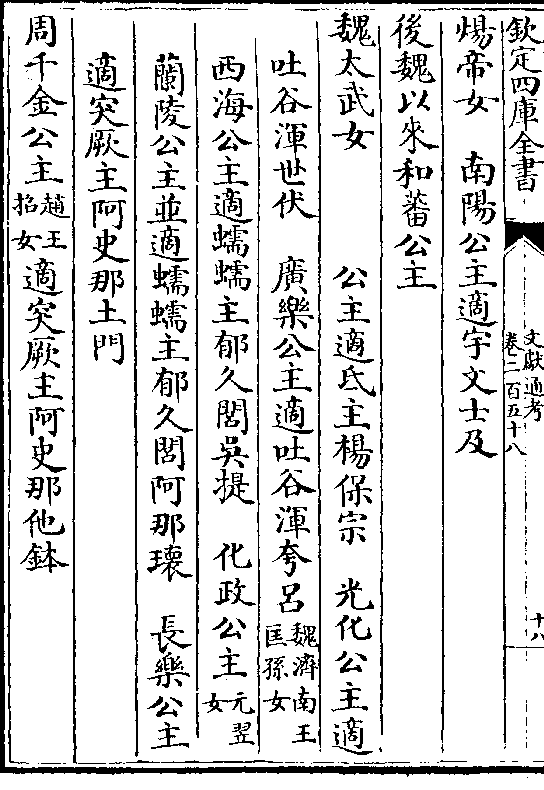 欽定四庫全書
文獻通考
卷二百五十八
十八
煬帝女　南陽公主適宇文士及
後魏以來和蕃公主
魏太武女　公主適氐主楊保宗　光化公主適
吐谷渾世伏　廣樂公主適吐谷渾夸呂魏濟南王匡孫女
西海公主適蠕蠕主郁久閭吳提　化政公主元翌女
蘭陵公主並適蠕蠕主郁久閭阿那瓌　長樂公主
適突厥主阿史那土門
周千金公主趙王招女適突厥主阿史那他鉢